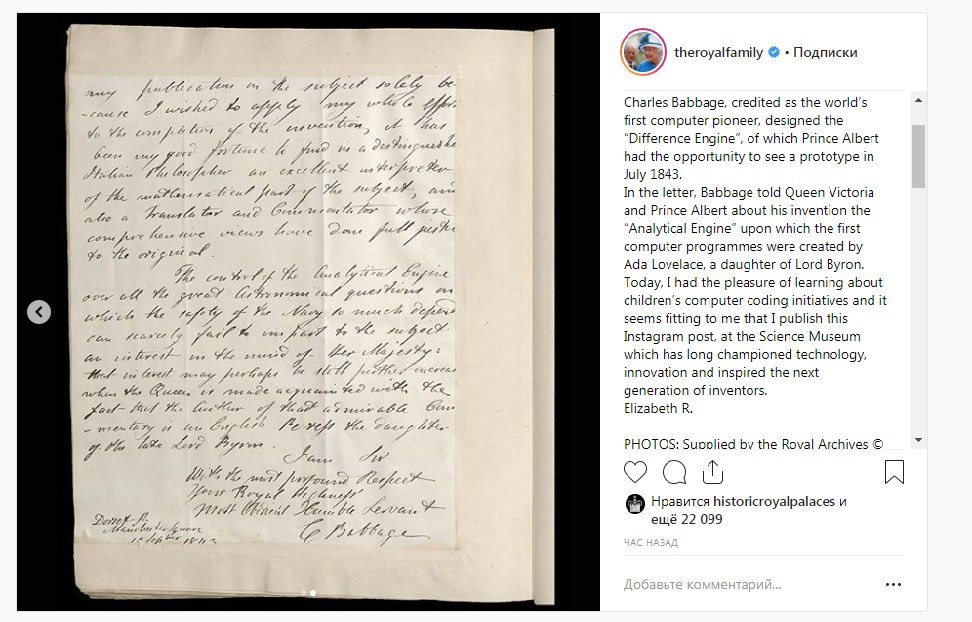 my publication on the subject solely be-
-cause I wished to apply my whole efforts
to the completion of the invention, it has
been my good fortune to find in a distinguished
Italian Philosopher an excellent interpreter
of the mathematical part of the subject, and
also a Translator and Commentator whose
comprehensive views have done full justice
to the original.
The control of the Analytical Engine
over all the great Astronomical questions on
which the safety of the Navy so much depends
can scarcely fail to impart to the subject
an interest in the mind of Her Majesty:
that interest may perhaps be still further increased
when the Queen is made acquainted with the
fact that the Author of that admirable Com
-mentary is an English Peeress the daughter
of the late Lord Byron.
I am Sir
With the most profound Respect
Your Royal Highness'
Most Obedient Humble Servant
C Babbage
Dorset St
Manchester Square
1843
theroyalfamily • Подписки
Charles Babbage, credited as the world's
first computer pioneer, designed the
“Difference Engine”, of which Prince Albert
had the opportunity to see a prototype in
July 1843.
In the letter, Babbage told Queen Victoria
and Prince Albert about his invention the
“Analytical Engine” upon which the first
computer programmes were created by
Ada Lovelace, a daughter of Lord Byron.
Today, I had the pleasure of learning about
children's computer coding initiatives and it
seems fitting to me that I publish this
Instagram post, at the Science Museum
which has long championed technology,
innovation and inspired the next
generation of inventors.
Elizabeth R.
PHOTOS: Supplied by the Royal Archives ©
Нравится historicroyalpalaces и
ещё 22 099
ЧАС НАЗАД
Добавьте комментарий...